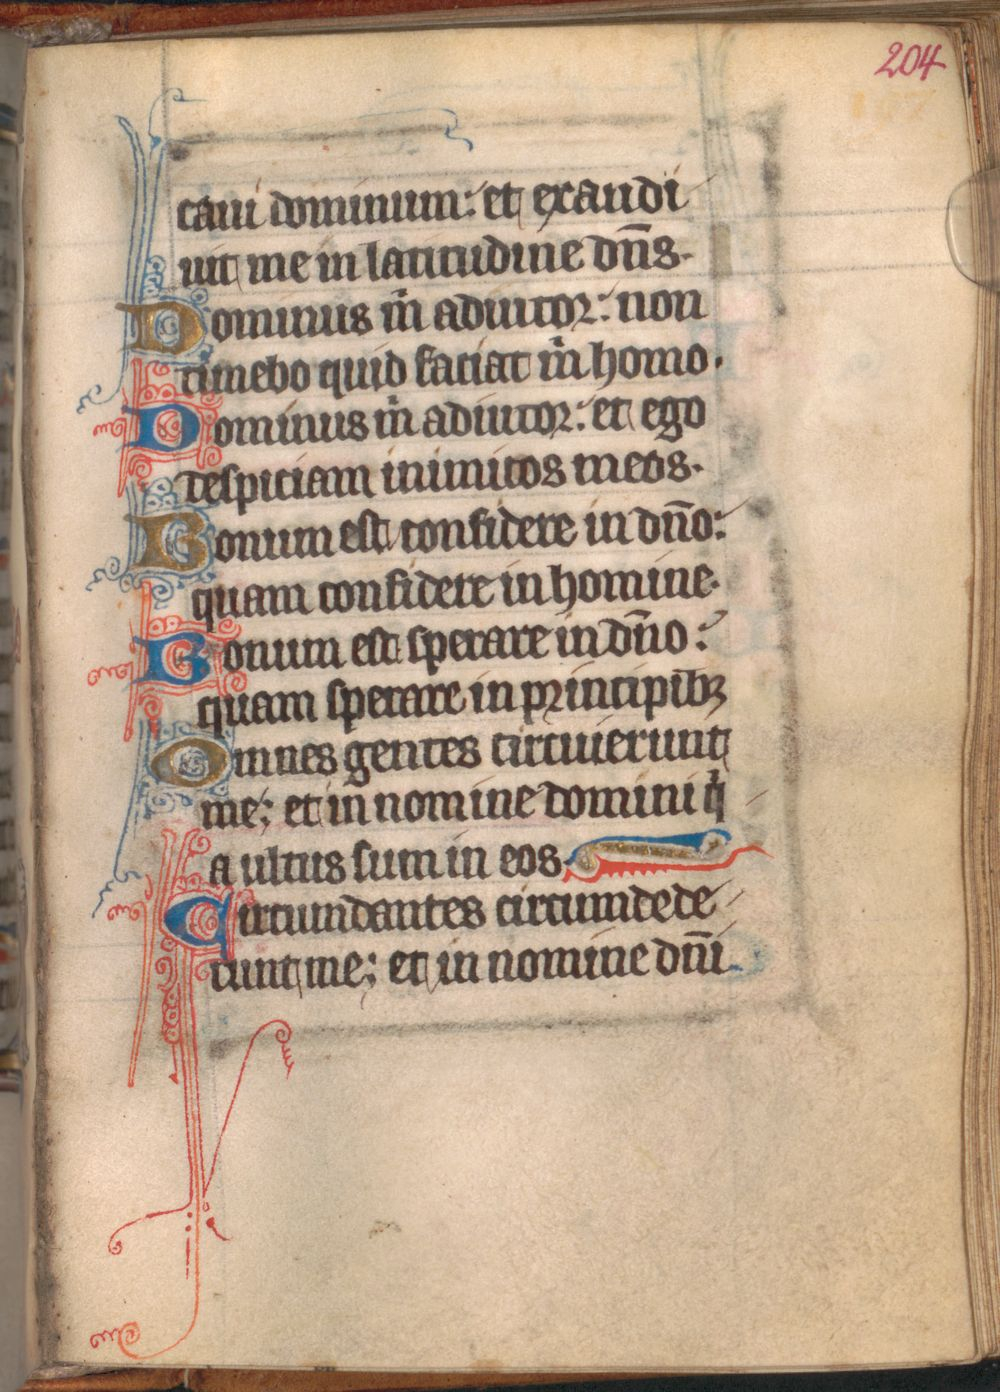 204
caui dominum: et exaudi
uit me in latitudine dn̄s.
Dominus m̄ adiutor: non
timebo quid faciat m̄ homo.
Dominus m̄ adiutor: et ego
despiciam inimicos meos.
Bonum est confidere in dn̄o:
quam confidere in homine.
Bonum est sperare in dn̄o:
quam sperare in principibꝫ
Omnes gentes circuierunt
me; et in nomine domini q̄
a ultus sum in eos
Circumdantes circumdede
runt me; et in nomine dn̄i.